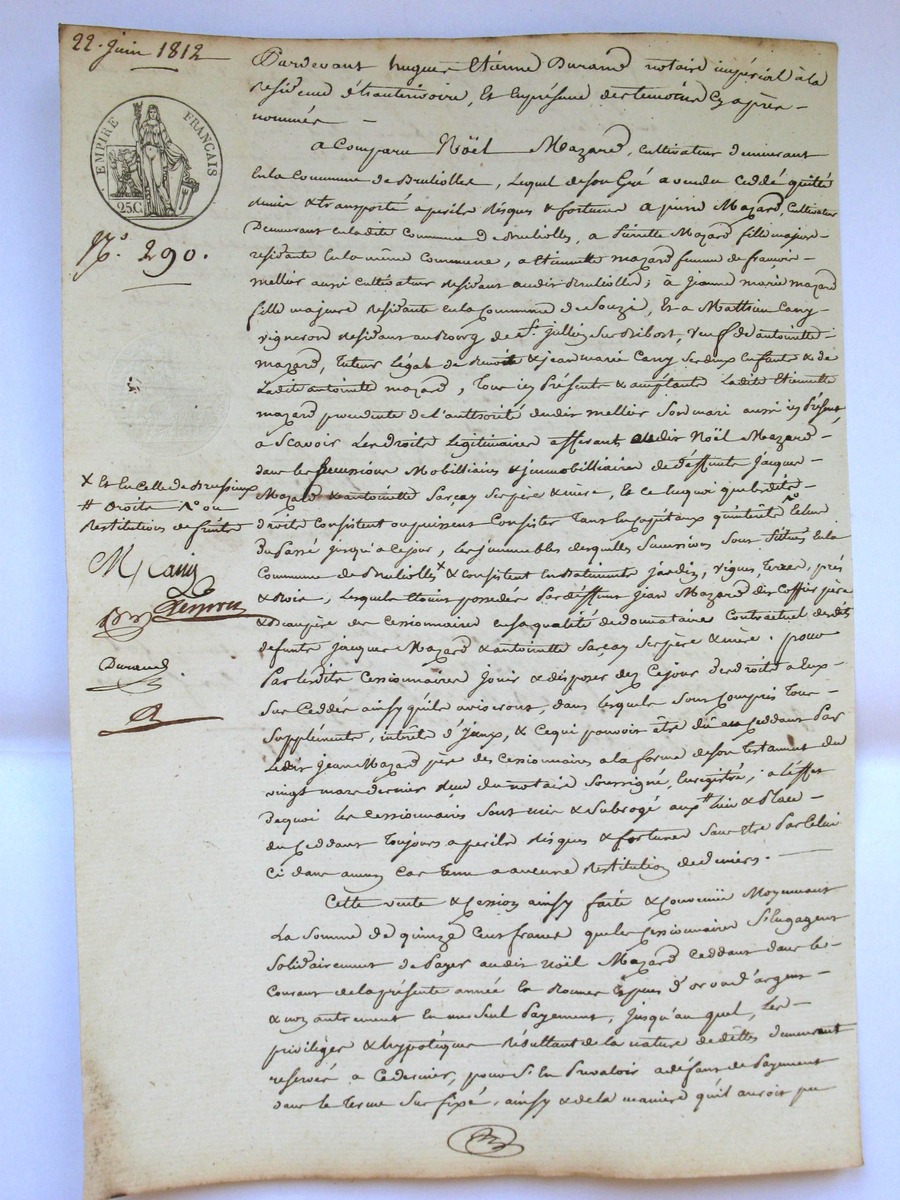 22. Juin 1812
EMPIRE FRANÇAIS
25.C
N.° 290.
Pardevant hugues Etienne Durand notaire impérial à la
residence d'hauterivoire, Et En présence des temoins Cy après
nommés
a Comparu Noël Mazard, cultivateur demeurant
En la Commune de Brulliolles, Lequel de son Gré a vendu ceddé quitté
remis & transporté a perils risques & fortune a pierre Mazard, cultivateur
Demeurant en ladite Commune de Brullioles, a Pierrette Mazard fille majeure
residante En la même Commune, a Etiennette mazard femme de francois
mellier aussi cultivateur residant audit Brullioles; à Jeanne marie mazard
fille majeure residante En la Commune de Souzi, Et a Mathieu Cany
vigneron residant au Bourg de St. Jullien Sur Bibost, veuf de antoinette
mazard, tuteur légal de & jean marie Cany Ses deux Enfants & de
Ladite antoinette mazard, Tous icy Présents & acceptants Ladite Etiennette
mazard procedente de l'authorité dudit mellier Son mari aussi icy Présent,
a Scavoir Les droits Legitimaires afferants audit Noël Mazard
dans les Successions Mobilliaires & immobilliaires de deffunts Jacques
Mazard & antoinette Sarcay Ses père & mère, Et ce En quoi que lesdits
droits Consistent ou puissent Consister Tant En Capitaux qu'intérêts
Du Passé jusqu'a Ce jour, Les immeubles desquelles Successions Sont Situés En la
Commune de Brulliolles x & Consistent En Batiments, jardin, vignes, terres, prés
& Bois, Lesquels Etoient possedés Par deffunt Jean Mazard dit Coffier père
& Beaupère des Cessionnaires En Sa qualité de donnataire Contractuel desdits
defunts Jacques Mazard & antoinette Sarcay Ses père & mère. pour
Par lesdits Cessionnaires jouir & disposer dez Ce jour des droits a Eux
Sus Ceddés ainsy qu'ils aviseront, dans lesquels Sont Compris Tous
Supplements, intérêts d'jceux, & Ce qui pouvoit être dû au Ceddant Par
Ledit Jean Mazard père des Cessionnaires a la forme de son Testament du
vingt mars dernier du notaire Soussigné, Enregistré; a L'effet
De quoi les Cessionnaires Sont mis & Subrogé aux # lieu & Place
du Ceddant Toujours a perils risques & fortunes Sans Etre Par Celui
Ci dans aucun Cas Tenu a aucune Restitution de deniers.
Cette vente & Cession ainsy faite & Convenüe Moyennant
La Somme de quinze Cent francs que les Cessionnaires S'Engagent
Solidairement de Payer audit Noël Mazard Ceddant dans le
Courant de la présente année En Bonnes Espèces d'or ou d'argent
& non autrement En un Seul Payement, jusqu'au quel, Les
privilèges & hypotèques résultant de la nature de dettes demeurent
reservés a Ce dernier, pour S'En Prevaloir a défaut de Payement
dans le Terme Sus fixé, ainsy & de la manière qu'il auroit pu
x Et En Celle de Brussieux
# droits
Restitutions de fruits
M Cany
Durand